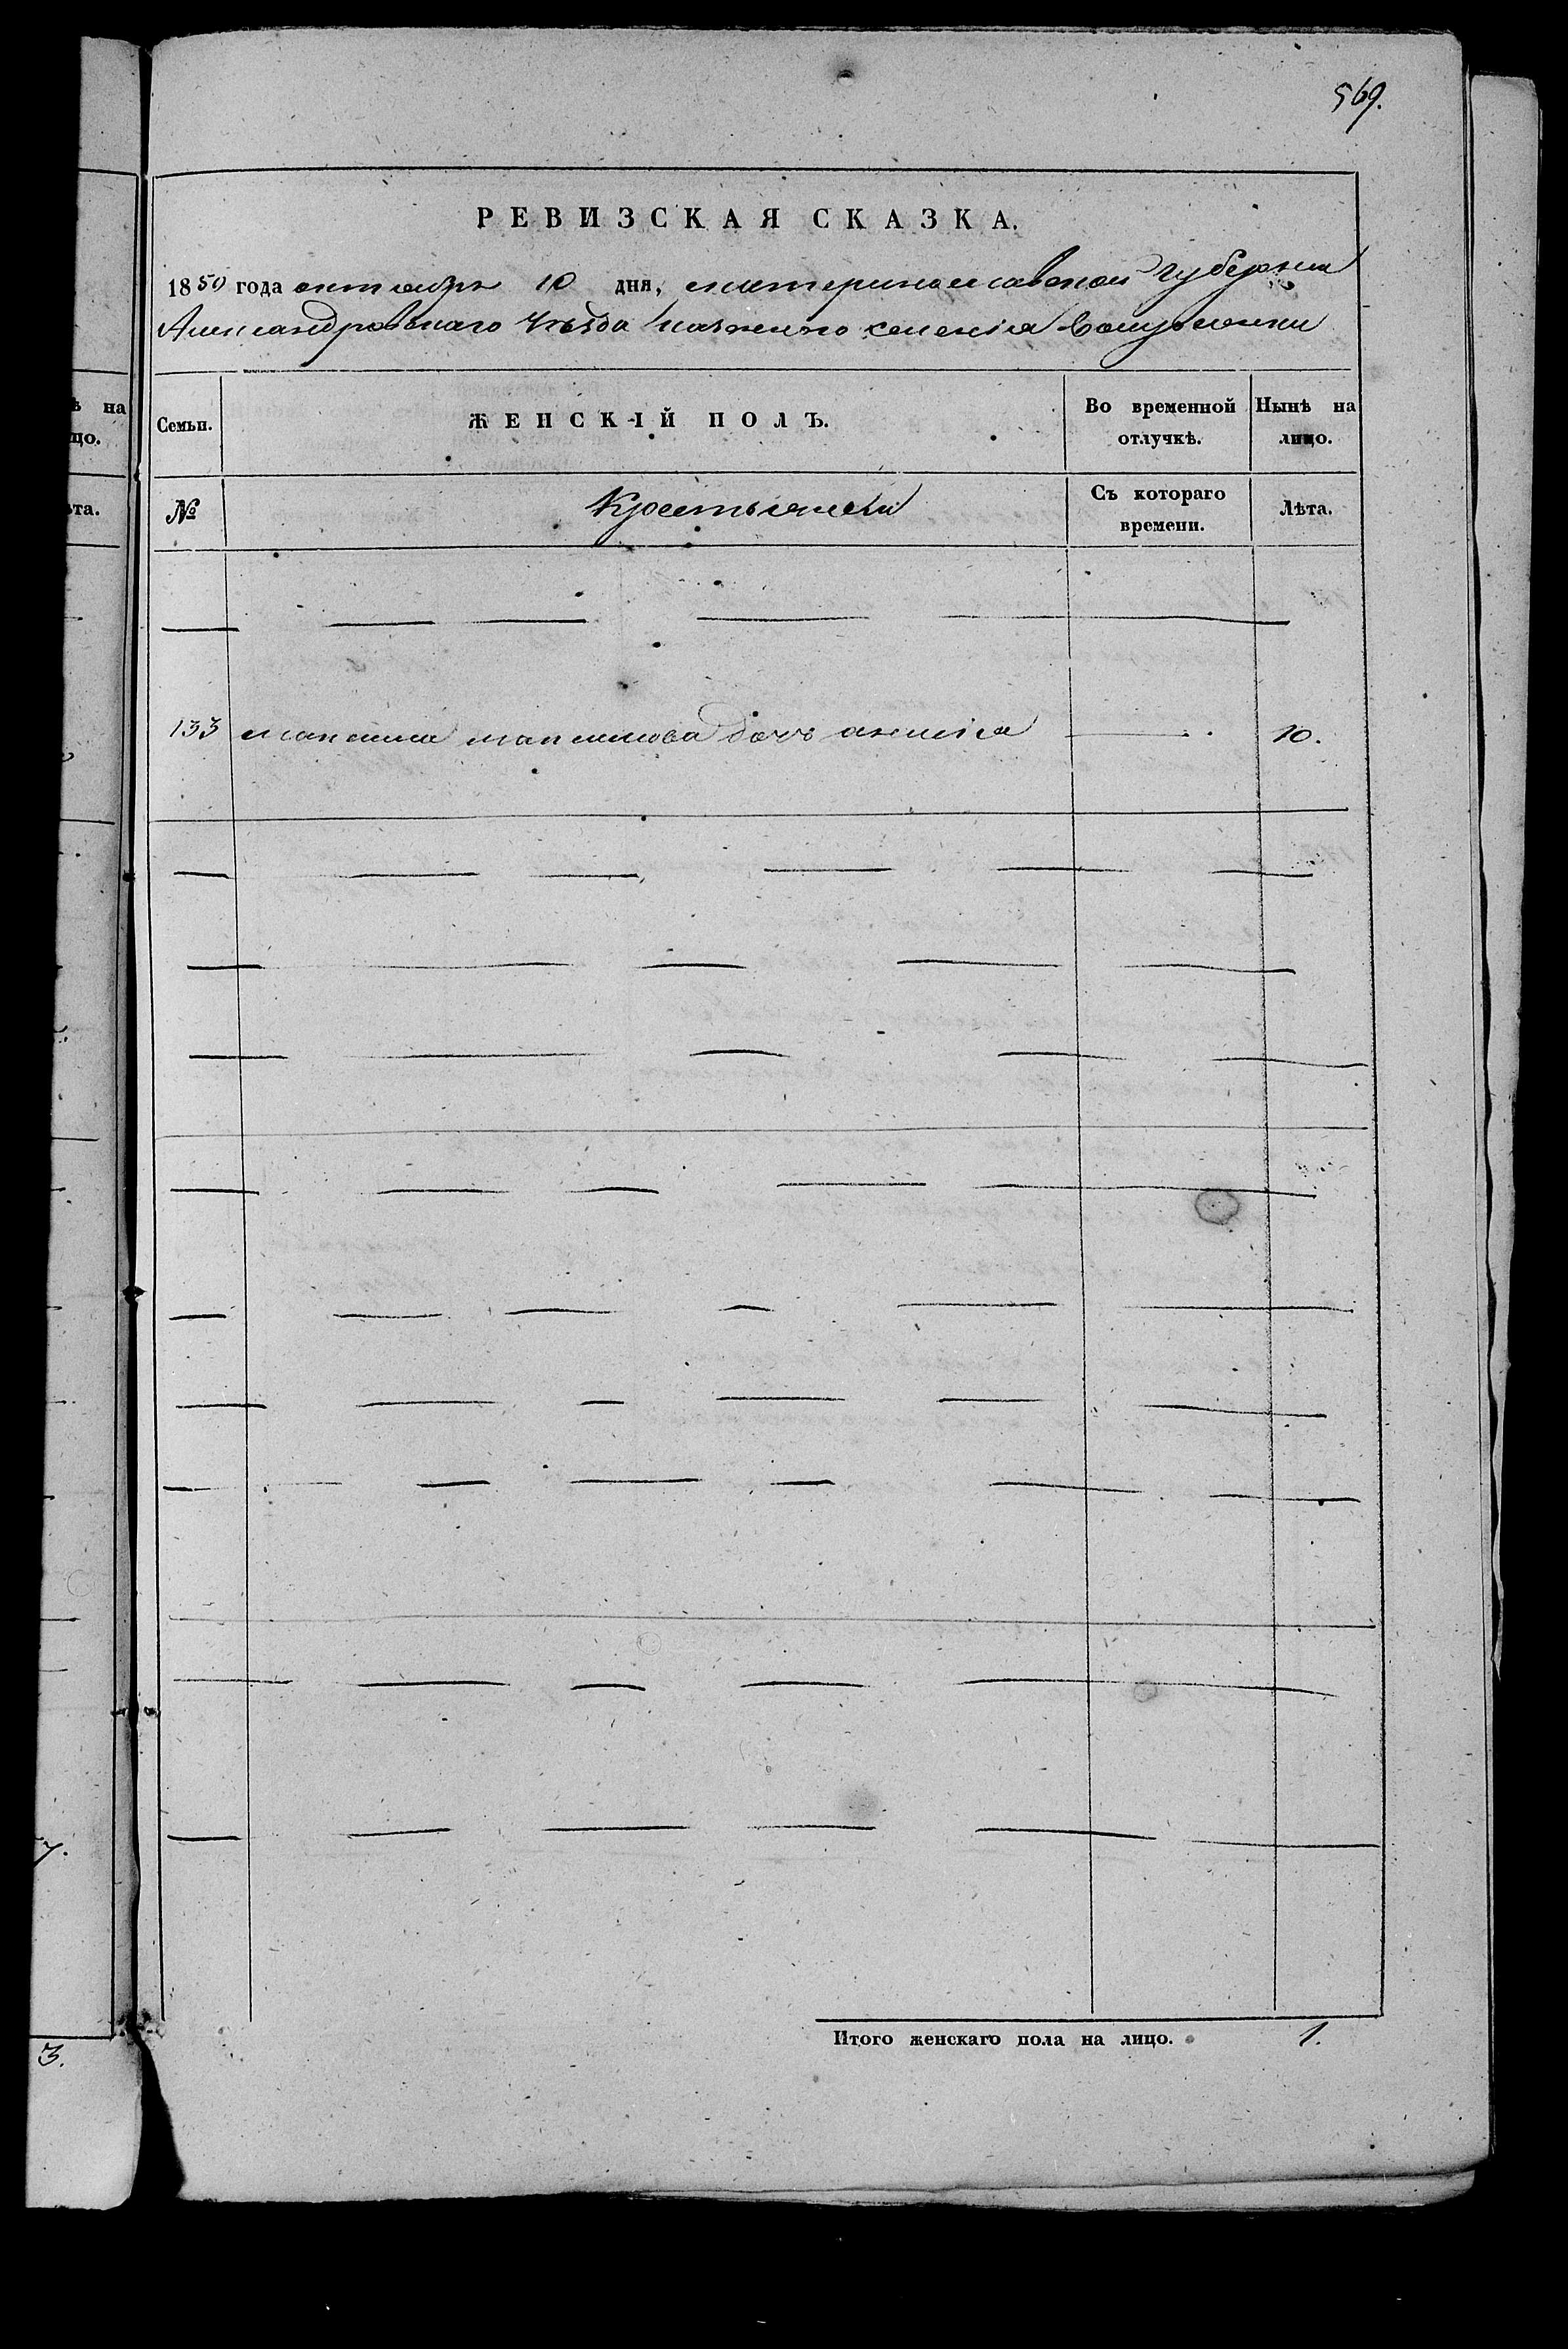 569.
РЕВИЗСКАЯ СКАЗКА.
1850 года октября 10 дня, екатеринославской губернии
Александровскаго уѣзда казенного селенія
Семьи. ЖЕНСКІЙ ПОЛЪ. Во временной отлучкѣ. Нынѣ на лицо.
№ Крестьянски Съ котораго времени. Лѣта.
133 максима максимова дочь 10.
Итого женскаго пола на лицо. 1.
ѣ на
цо.
ѣта.
7.
3.